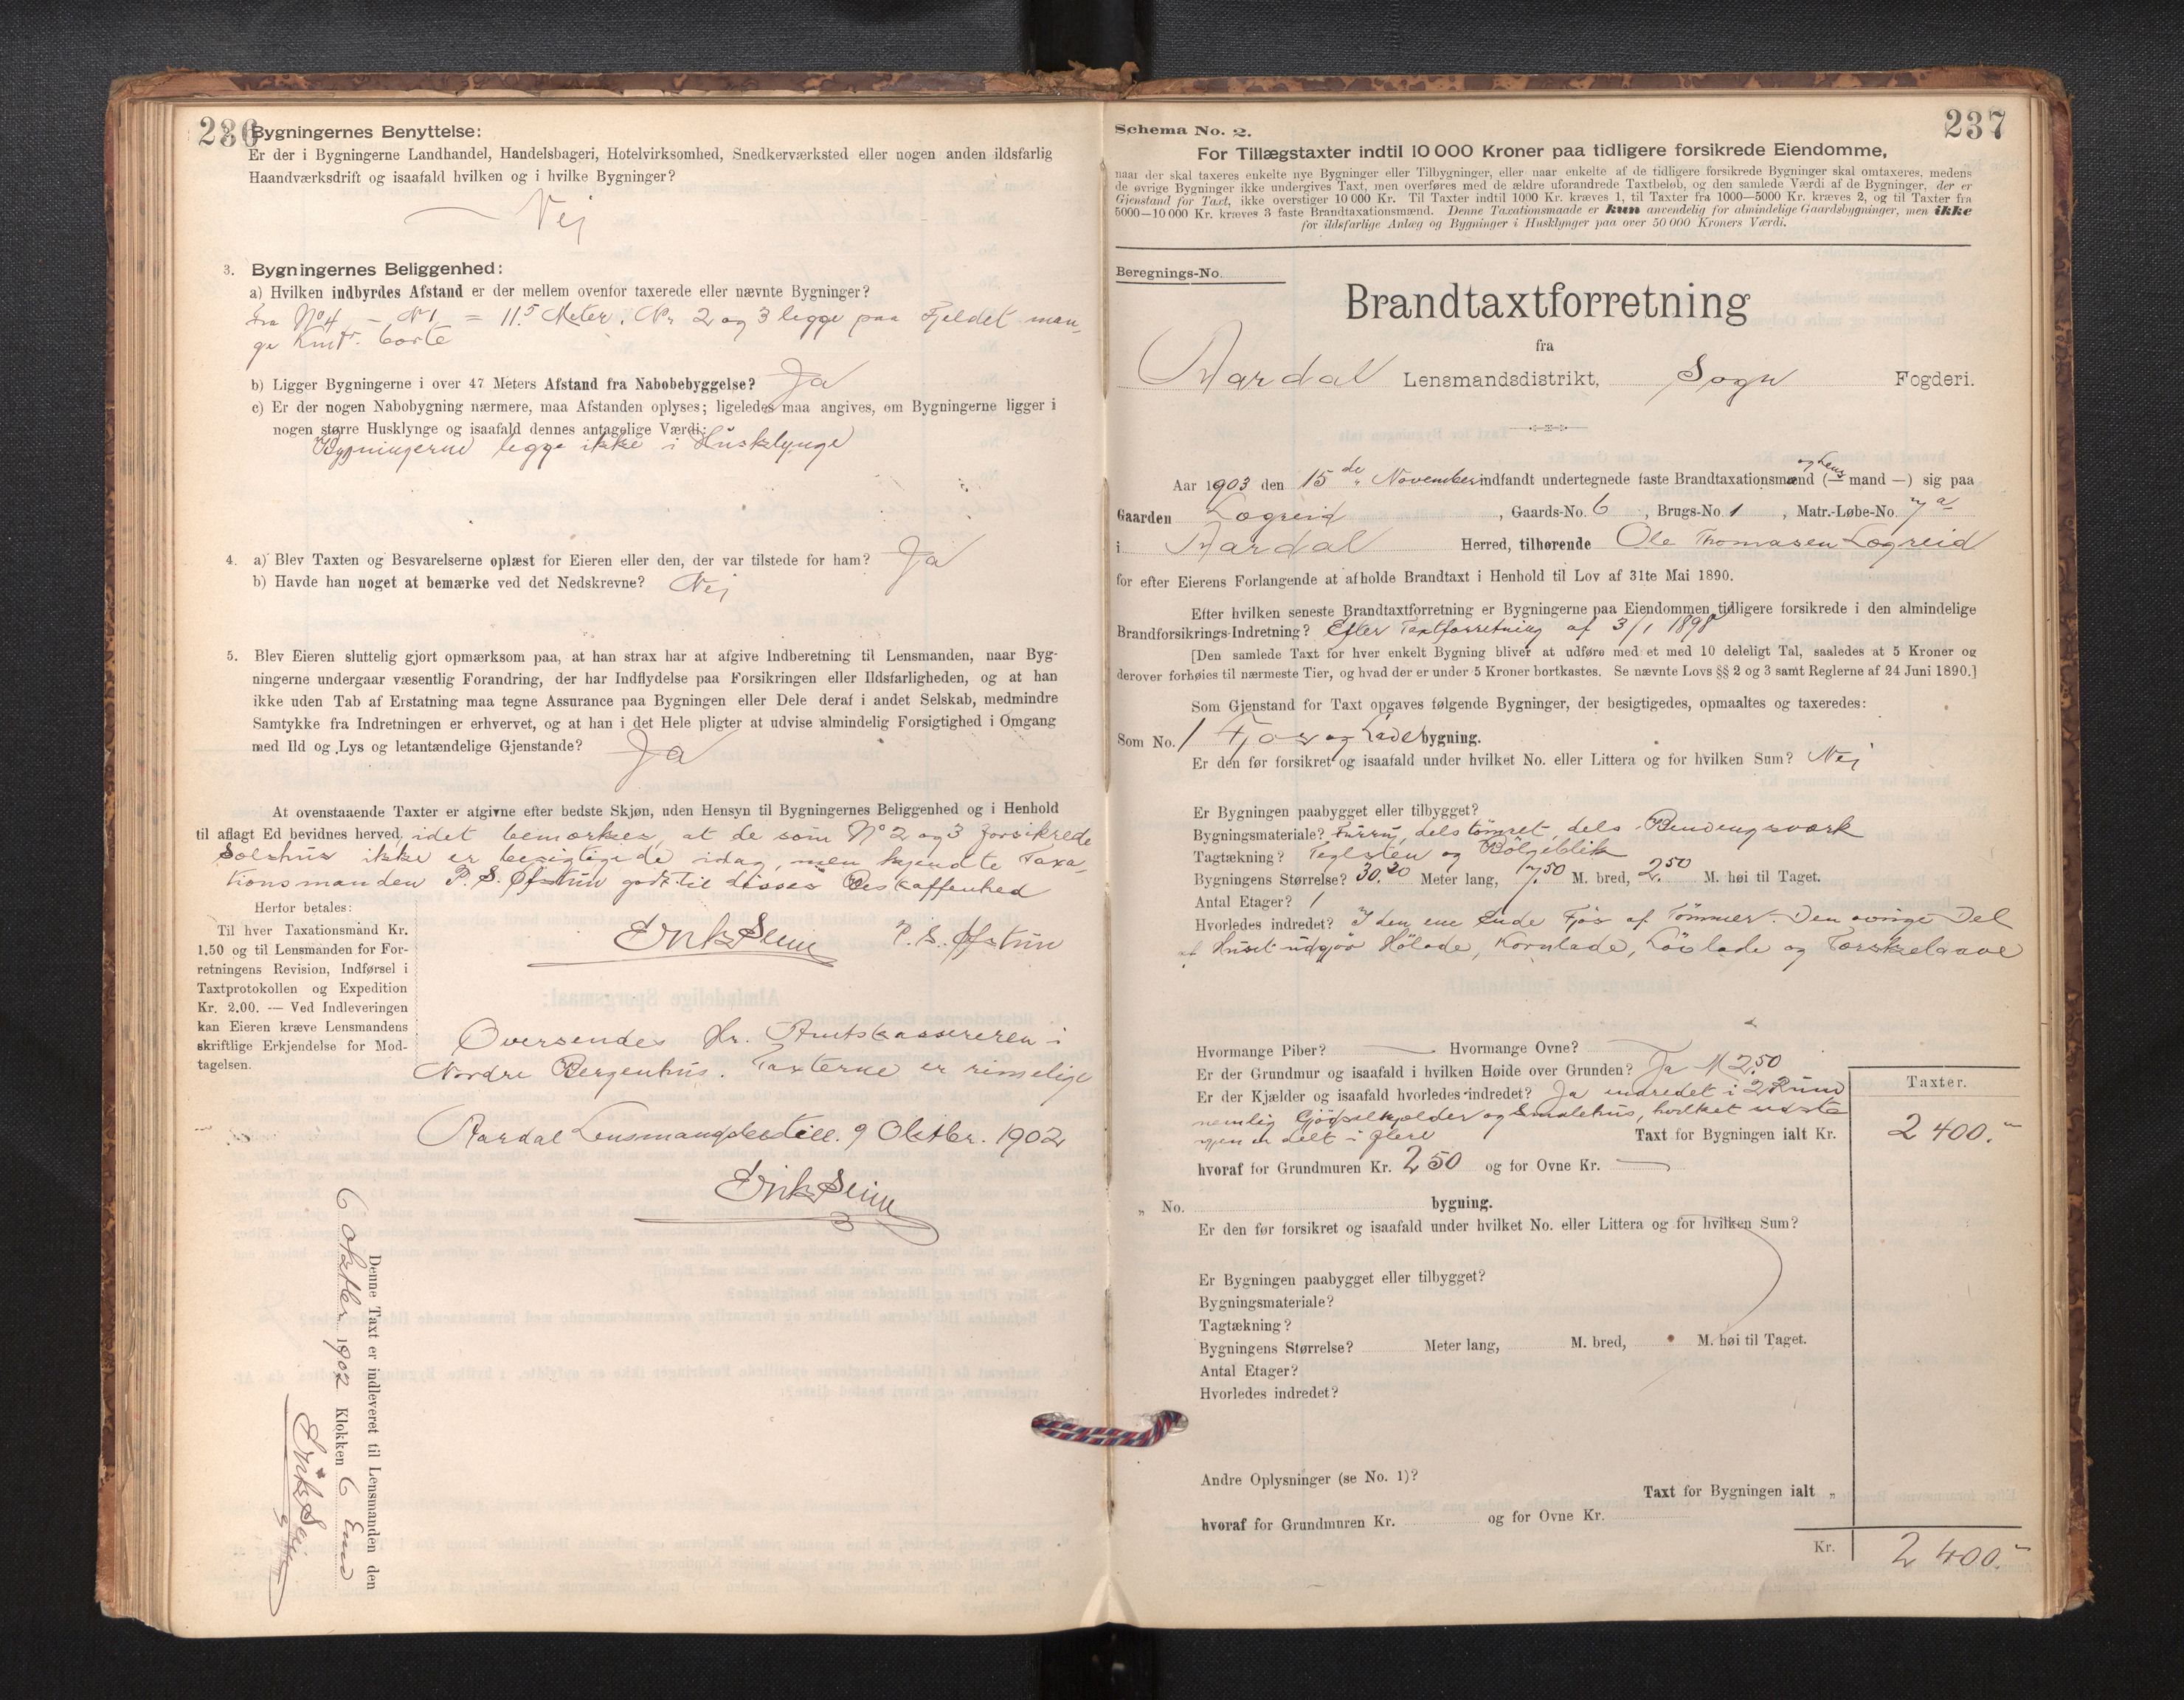 236
2. Bygningernes Benyttelse:
Er der i Bygningerne Landhandel, Handelsbageri, Hotelvirksomhed, Snedkerværksted eller nogen anden ildsfarlig
Haandværksdrift og isaafald hvilken og i hvilke Bygninger?
Nej
3. Bygningernes Beliggenhed:
a) Hvilken indbyrdes Afstand er der mellem ovenfor taxerede eller nævnte Bygninger?
Fra No 4 – N 1 = 11.5 Meter. Nr. 2 og 3 legge paa Fjeldet man-
ge Kmtr. borte
b) Ligger Bygningerne i over 47 Meters Afstand fra Nabobebyggelse? Ja
c) Er der nogen Nabobygning nærmere, maa Afstanden oplyses; ligeledes maa angives, om Bygningerne ligger i
nogen større Husklynge og isaafald dennes antagelige Værdi:
Bygningerne legge ikke i Husklynge
4. a) Blev Taxten og Besvarelserne oplæst for Eieren eller den, der var tilstede for ham? Ja
b) Havde han noget at bemærke ved det Nedskrevne? Nej
5. Blev Eieren sluttelig gjort opmærksom paa, at han strax har at afgive Indberetning til Lensmanden, naar Byg-
ningerne undergaar væsentlig Forandring, der har Indflydelse paa Forsikringen eller Ildsfarligheden, og at han
ikke uden Tab af Erstatning maa tegne Assurance paa Bygningen eller Dele deraf i andet Selskab, medmindre
Samtykke fra Indretningen er erhvervet, og at han i det Hele pligter at udvise almindelig Forsigtighed i Omgang
med Ild og Lys og letantændelige Gjenstande? Ja
At ovenstaaende Taxter er afgivne efter bedste Skjøn, uden Hensyn til Bygningernes Beliggenhed og i Henhold
til aflagt Ed bevidnes herved, idet bemærkes at de som No 2 og 3 forsikrede
Selshus ikke er besigtigede idag, men kjendte Taxa-
tionsmanden P. S. Øfstun godt til disses Beskaffenhed
Erik Seim P. S. Øfstun
Herfor betales:
Til hver Taxationsmand Kr.
1.50 og til Lensmanden for For-
retningens Revision, Indførsel i
Taxtprotokollen og Expedition
Kr. 2.00. — Ved Indleveringen
kan Eieren kræve Lensmandens
skriftlige Erkjendelse for Mod-
tagelsen.
Oversendes Hr. Amtskassereren i
Nordre Bergenhus. Taxterne er rimelige
Aardal Lensmandsbestill. 9 Oktbr. 1902
Erik Seim
Denne Taxt er indleveret til Lensmanden den
6 Oktbr. 1902 Klokken 6 Emd
Erik Seim
237
Schema No. 2.
For Tillægstaxter indtil 10 000 Kroner paa tidligere forsikrede Eiendomme,
naar der skal taxeres enkelte nye Bygninger eller Tilbygninger, eller naar enkelte af de tidligere forsikrede Bygninger skal omtaxeres, medens
de øvrige Bygninger ikke undergives Taxt, men overføres med de ældre uforandrede Taxtbeløb, og den samlede Værdi af de Bygninger, der er
Gjenstand for Taxt, ikke overstiger 10 000 Kr. Til Taxter indtil 1000 Kr. kræves 1, til Taxter fra 1000—5000 Kr. kræves 2, og til Taxter fra
5000—10 000 Kr. kræves 3 faste Brandtaxationsmænd. Denne Taxationsmaade er kun anvendelig for almindelige Gaardsbygninger, men ikke
for ildsfarlige Anlæg og Bygninger i Husklynger paa over 50 000 Kroners Værdi.
Beregnings-No.
Brandtaxtforretning
fra
Aardal Lensmandsdistrikt, Sogn Fogderi.
Aar 1903 den 15de November indfandt undertegnede faste Brandtaxationsmænd (— og Lensmand —) sig paa
Gaarden Lægreid, Gaards-No. 6, Brugs-No. 1, Matr.-Løbe-No. 7a
i Aardal Herred, tilhørende Ole Thomasen Lægreid
for efter Eierens Forlangende at afholde Brandtaxt i Henhold til Lov af 31te Mai 1890.
Efter hvilken seneste Brandtaxtforretning er Bygningerne paa Eiendommen tidligere forsikrede i den almindelige
Brandforsikrings-Indretning? Efter Taxtforretning af 3/1 1898
[Den samlede Taxt for hver enkelt Bygning bliver at udføre med et med 10 deleligt Tal, saaledes at 5 Kroner og
derover forhøies til nærmeste Tier, og hvad der er under 5 Kroner bortkastes. Se nævnte Lovs §§ 2 og 3 samt Reglerne af 24 Juni 1890.]
Som Gjenstand for Taxt opgaves følgende Bygninger, der besigtigedes, opmaaltes og taxeredes:
Som No. 1 Fjøs og Ladebygning.
Er den før forsikret og isaafald under hvilket No. eller Littera og for hvilken Sum? Nei
Er Bygningen paabygget eller tilbygget?
Bygningsmateriale? Furru, dels tømret, dels Bendingsværk
Tagtækning? Teglsten og Bölgeblik
Bygningens Størrelse? 30.20 Meter lang, 17.50 M. bred, 2.50 M. høi til Taget.
Antal Etager? 1
Hvorledes indredet? I den ene Ende Fjös af Tömmer. Den övrige Del
af Huset udgjör Hölade, Kornlade, Lövlade og Tærskelaave
Hvormange Piber? — Hvormange Ovne? —
Er der Grundmur og isaafald i hvilken Høide over Grunden? Ja M 2.50
Er der Kjælder og isaafald hvorledes indredet? Ja indredet i 2 Rum
nemlig Gjödselkjelder og Smalehus, hvilket
er delt i flere
Taxter.
Taxt for Bygningen ialt Kr. 2 400.
hvoraf for Grundmuren Kr. 250 og for Ovne Kr. —
„ No. bygning.
Er den før forsikret og isaafald under hvilket No. eller Littera og for hvilken Sum?
Er Bygningen paabygget eller tilbygget?
Bygningsmateriale?
Tagtækning?
Bygningens Størrelse? Meter lang, M. bred, M. høi til Taget.
Antal Etager?
Hvorledes indredet?
Andre Oplysninger (se No. 1)?
Taxt for Bygningen ialt „
hvoraf for Grundmuren Kr. og for Ovne Kr.
Kr. 2 400.